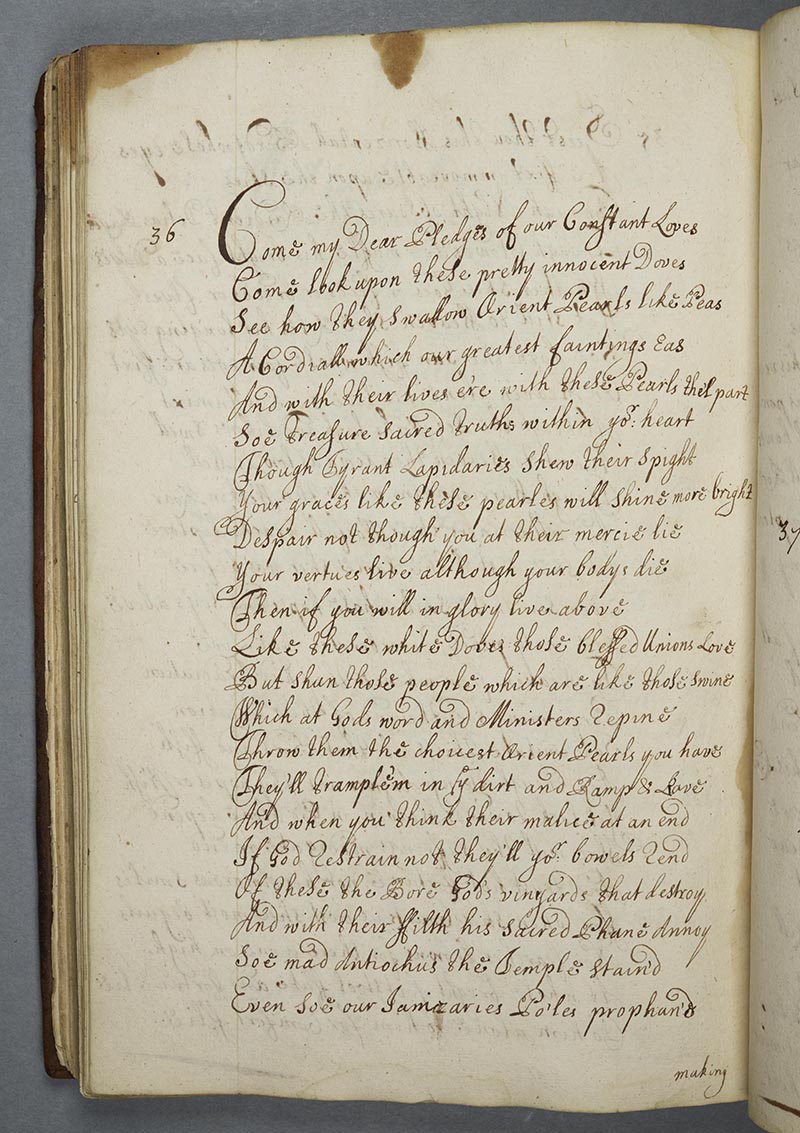 36
Come my Dear Pledges of our Constant Loves
Come look upon these pretty innocent Doves
See how they swallow Orient Pearls like Peas
A Cordiall which our greatest faintings Eas
And with their lives e're with these Pearls the'l part
Soe treasure sacred truths within yor: heart
Though Tyrant Lapidaries shew their spight
Your graces like these pearles will shine more bright
Despair not though you at their mercie lie
Your vertues live although your bodys die
Then if you will in glory live above
Like these white Doves those blessed Unions Love
But shun those people which are like those swine
Which at Gods word and Ministers repine
Throw them the choicest Orient Pearls you have
They'll trample'm in ye dirt and Ramp & Rave
And when you think their malice at an end
If God restrain not they'll yor: bowels rend
Of these the Bore Gods vinyards that destroy
And with their filth his sacred Phane Annoy
Soe mad Antiochus the Temple stain'd
Even soe our Janizaries Po'les prophan'd
making
37